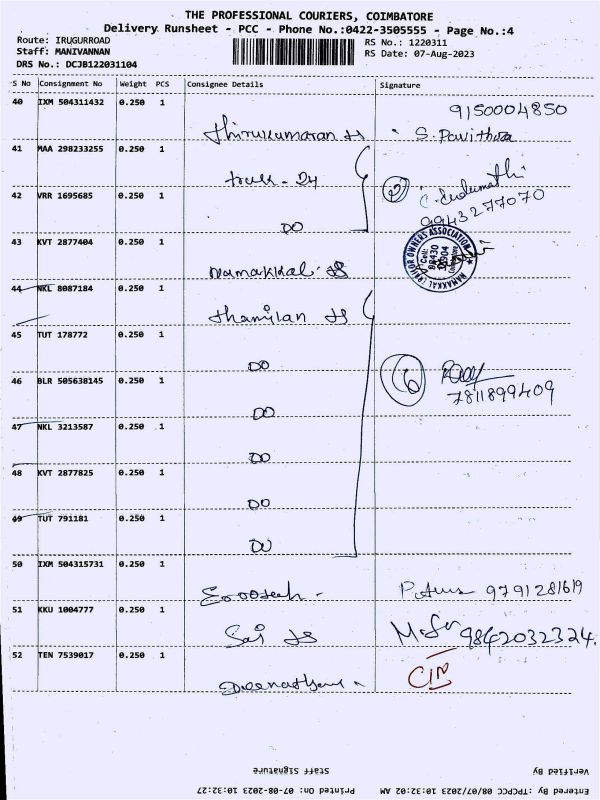 THE PROFESSIONAL COURIERS, COIMBATORE
Delivery Runsheet - PCC - Phone No.:0422-3505555 - Page No.:4
Route: IRUGURROAD
RS No.: 1220311
Staff: MANIVANNAN
RS Date: 07-Aug-2023
DRS No.: DCJB122031104
S No Consignment No Weight PCS Consignee Details Signature
40 IXM 504311432 0.250 1
9150004850
Thirukumaran
S. Pavithra
41 MAA 298233255 0.250 1
truck - 24
42 VRR 1695685 0.250 1
2
9943277070
DO
43 KVT 2877404 0.250 1
Namakkal
44 NKL 8087184 0.250 1
45 TUT 178772 0.250 1
DO
46 BLR 505638145 0.250 1
6
7811899409
DO
47 NKL 3213587 0.250 1
DO
48 KVT 2877825 0.250 1
DO
49 TUT 791181 0.250 1
DO
50 IXM 504315731 0.250 1
9791281619
51 KKU 1004777 0.250 1
Sai
9842032324.
52 TEN 7539017 0.250 1
Staff Signature
Verified By
Printed On: 07-08-2023 10:32:27
Entered By :TPCPCC 08/07/2023 10:32:02 AM